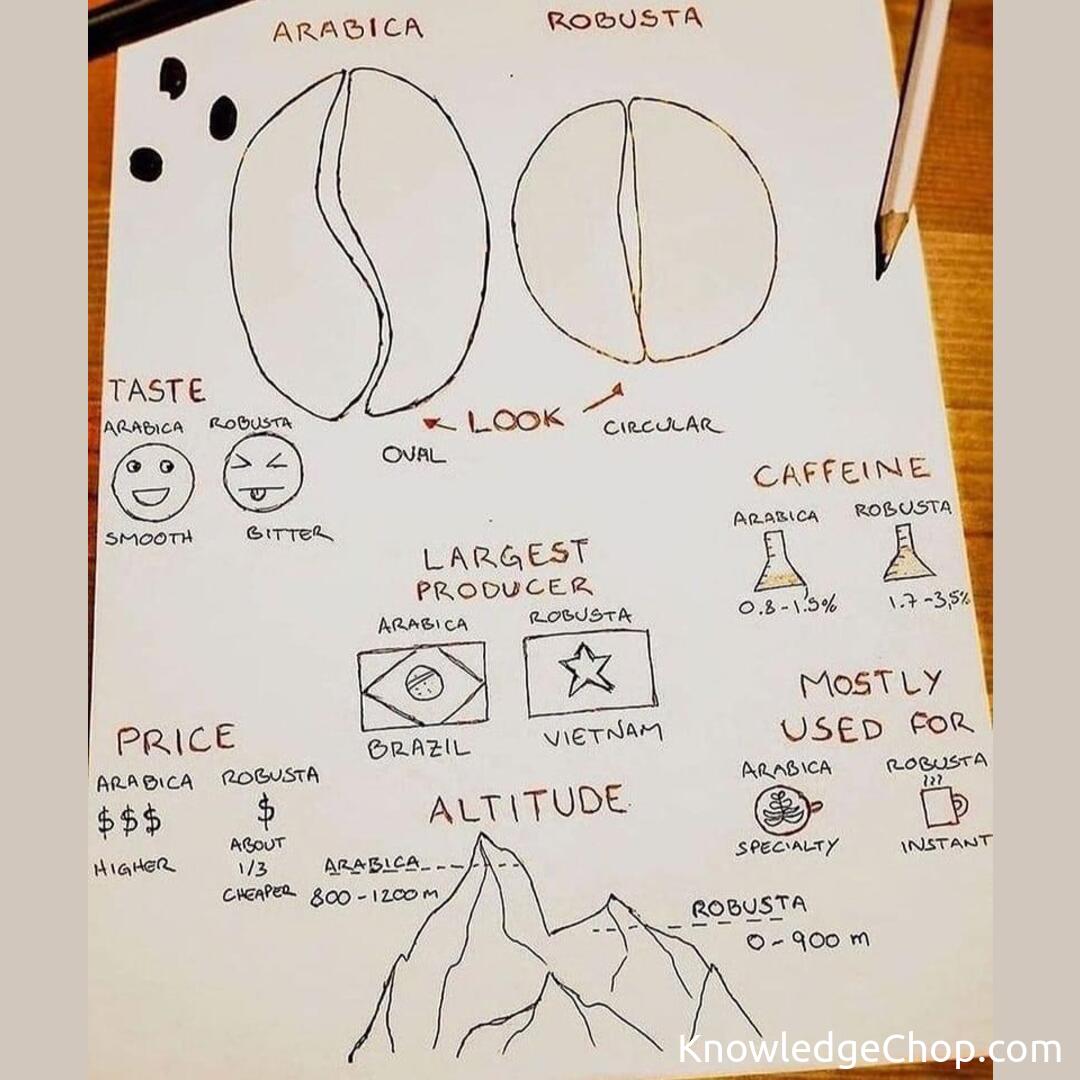 ARABICA
ROBUSTA
LOOK
OVAL
CIRCULAR
TASTE
ARABICA
ROBUSTA
SMOOTH
BITTER
CAFFEINE
ARABICA
ROBUSTA
0.8-1.5%
1.7-3,5%
LARGEST
PRODUCER
ARABICA
ROBUSTA
BRAZIL
VIETNAM
MOSTLY
USED FOR
ARABICA
ROBUSTA
SPECIALTY
INSTANT
PRICE
ARABICA
ROBUSTA
$$$
$
HIGHER
ABOUT
1/3
CHEAPER
ALTITUDE
ARABICA
800-1200m
ROBUSTA
0-900 m
KnowledgeChop.com